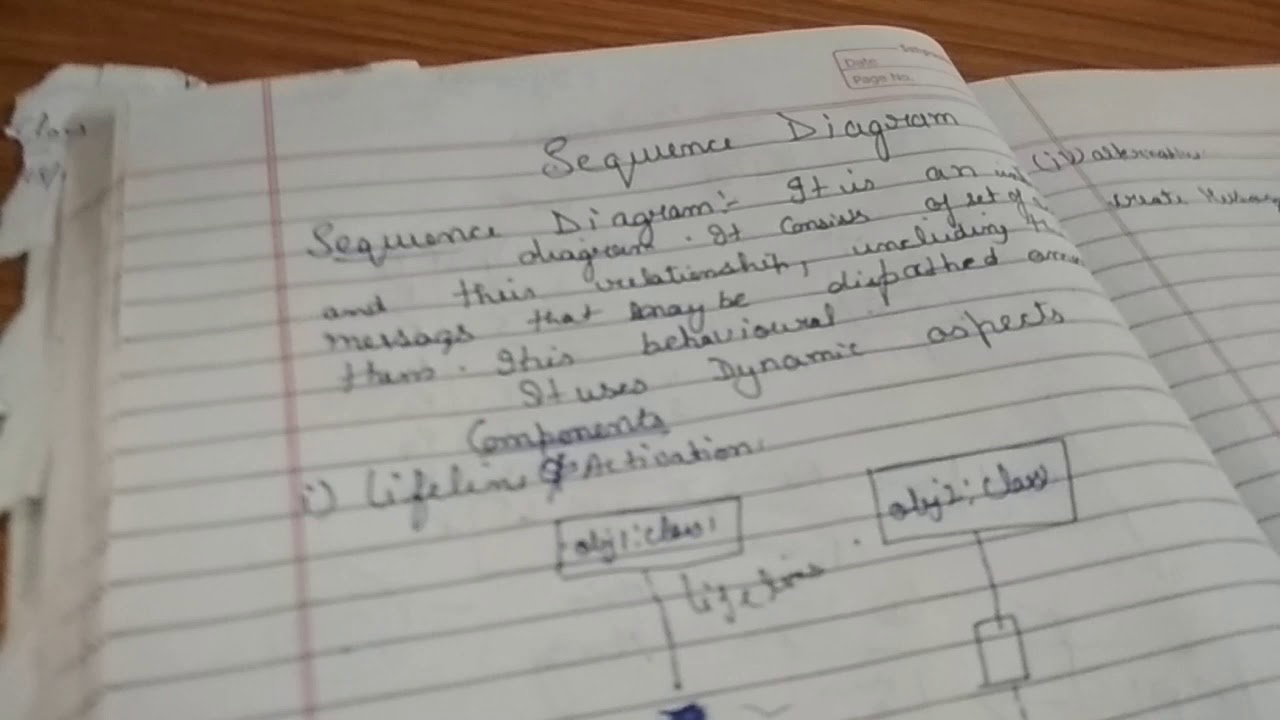 Date
Page No.
Sequence Diagram
Sequence Diagram :- It is an
diagram. It consists of set of
and their relationship, including
messags that may be dispathed
them. This behavioural
It uses Dynamic aspects
Components
i) Lifeline & Activation
obj1:class1
obj2:class
lifeline
(iv) alternative
create Message